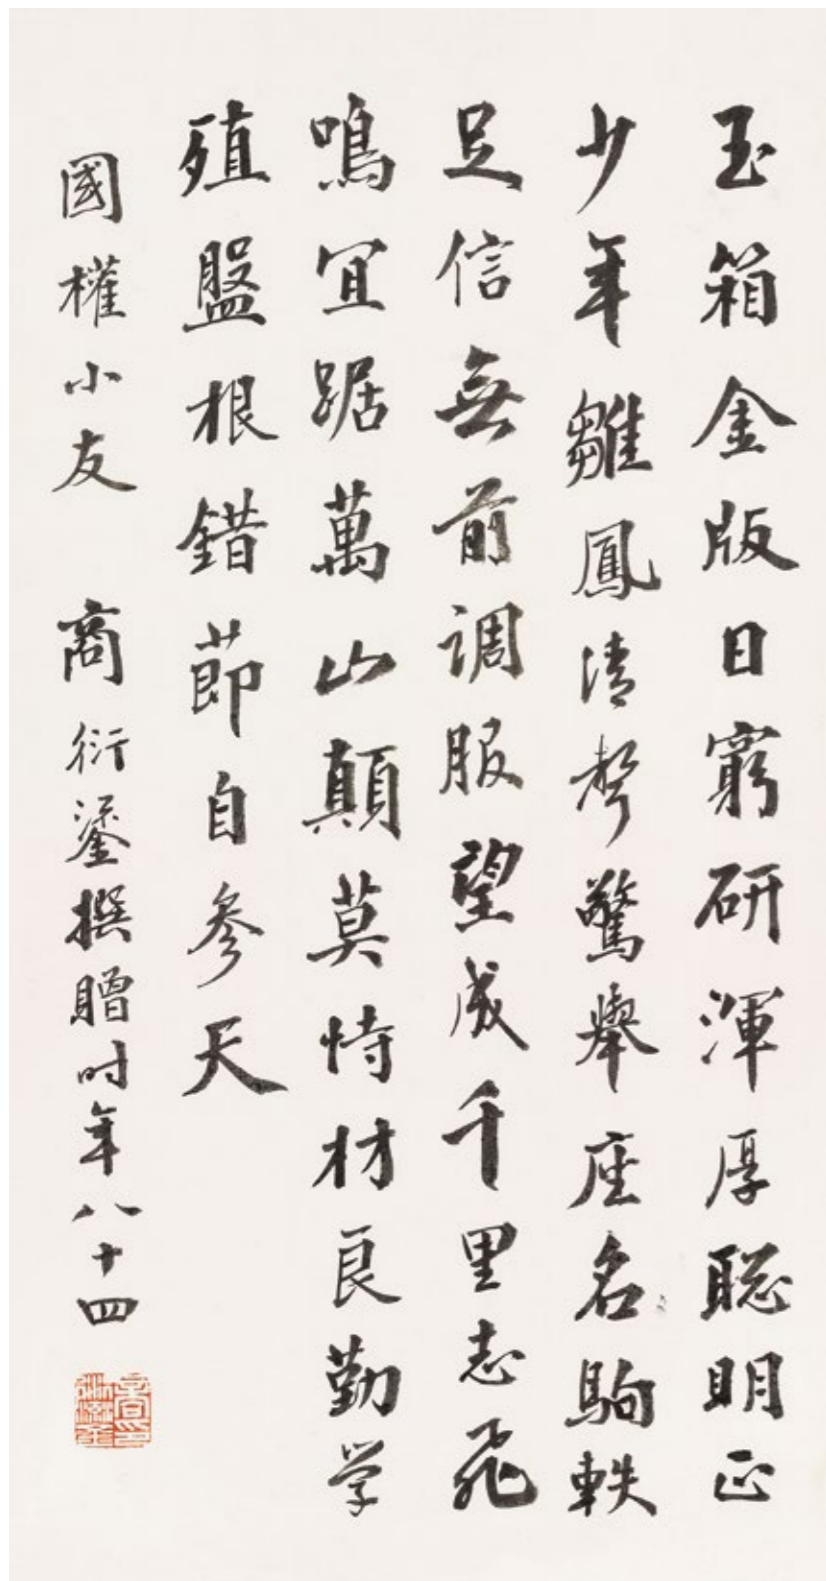 玉箱金版日窮研渾厚聰明正
少年雛鳳清聲驚舉座名駒軼
足信無前調服望成千里志飛
鳴宜踞萬山顛莫恃材良勤学
殖盤根錯節自參天
國權小友 商衍鎏撰贈时年八十四
商衍鎏印